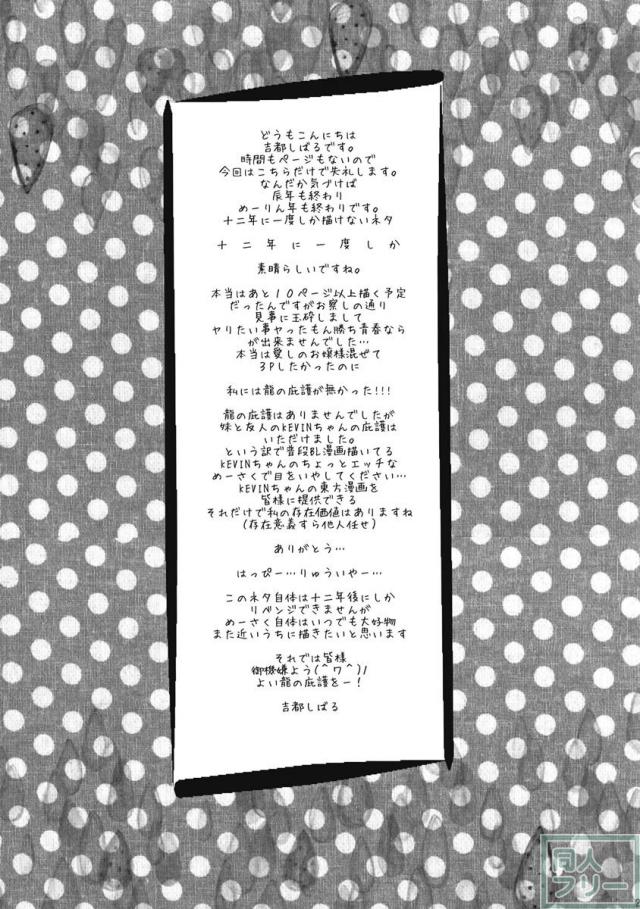 どうもこんにちは
吉都しばるです。
時間もページもないので
今回はこちらだけで失礼します。
なんだか気づけば
辰年も終わり
めーりん年も終わりです。
十二年に一度しか描けないネタ
十二年に一度しか
素晴らしいですね。
本当はあと10ページ以上描く予定
だったんですがお察しの通り
見事に玉砕しまして
ヤりたい事ヤったもん勝ち青春なら
が出来ませんでした…
本当は愛しのお嬢様混ぜて
3Pしたかったのに
私には龍の庇護が無かった!!!
龍の庇護はありませんでしたが
妹と友人のKEVINちゃんの庇護は
いただけました。
という訳で普段BL漫画描いてる
KEVINちゃんのちょっとエッチな
めーさくで目をいやしてください…
KEVINちゃんの東方漫画を
皆様に提供できる
それだけで私の存在価値はありますね
(存在意義すら他人任せ)
ありがとう…
はっぴー…りゅういやー…
このネタ自体は十二年後にしか
リベンジできませんが
めーさく自体はいつでも大好物
また近いうちに描きたいと思います
それでは皆様
御機嫌よう(^ワ^)ノ
よい龍の庇護をー!
吉都しばる
同人
フリー